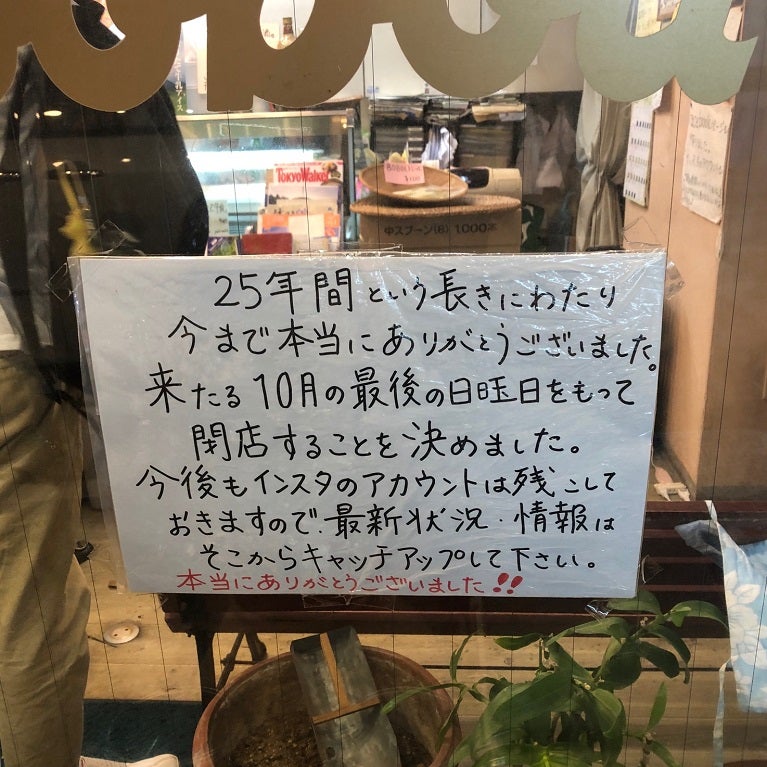 TokyoWalker
中スプーン(B) 1,000本
25年間という長きにわたり
今まで本当にありがとうございました。
来たる10月の最後の日曜日をもって
閉店することを決めました。
今後もインスタのアカウントは残こして
おきますので、最新状況・情報は
そこからキャッチアップして下さい。
本当にありがとうございました!!